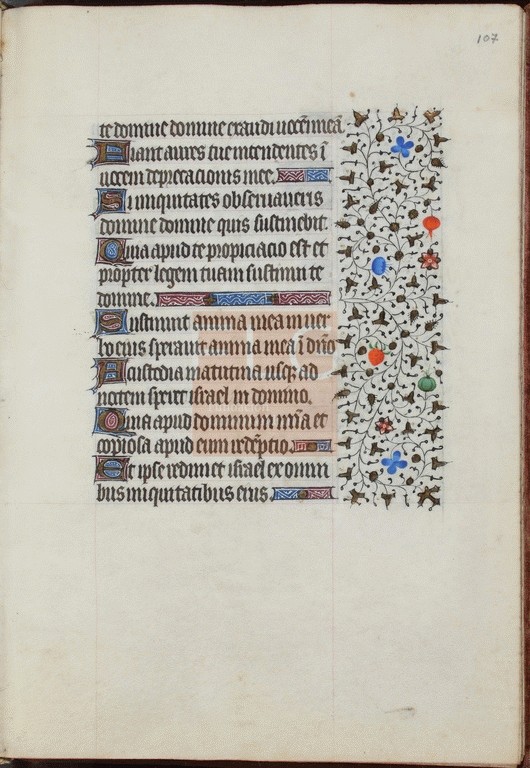 107
te domine domine exaudi uocē meā
Fiant aures tue intendentes ī
uocem deprecacionis mee.
Si iniquitates obseruaueris
domine domine quis sustinebit.
Quia apud te propiciacio est et
propter legem tuam sustinui te
domine.
Sustinuit anima mea in uer
bo eius sperauit anima mea ī dño
A custodia matutina usqȝ ad
noctem speret israel in domino.
Quia apud dominum mīa et
copiosa apud eum redēptio.
Et ipse redimet israel ex omni
bus iniquitatibus eius.